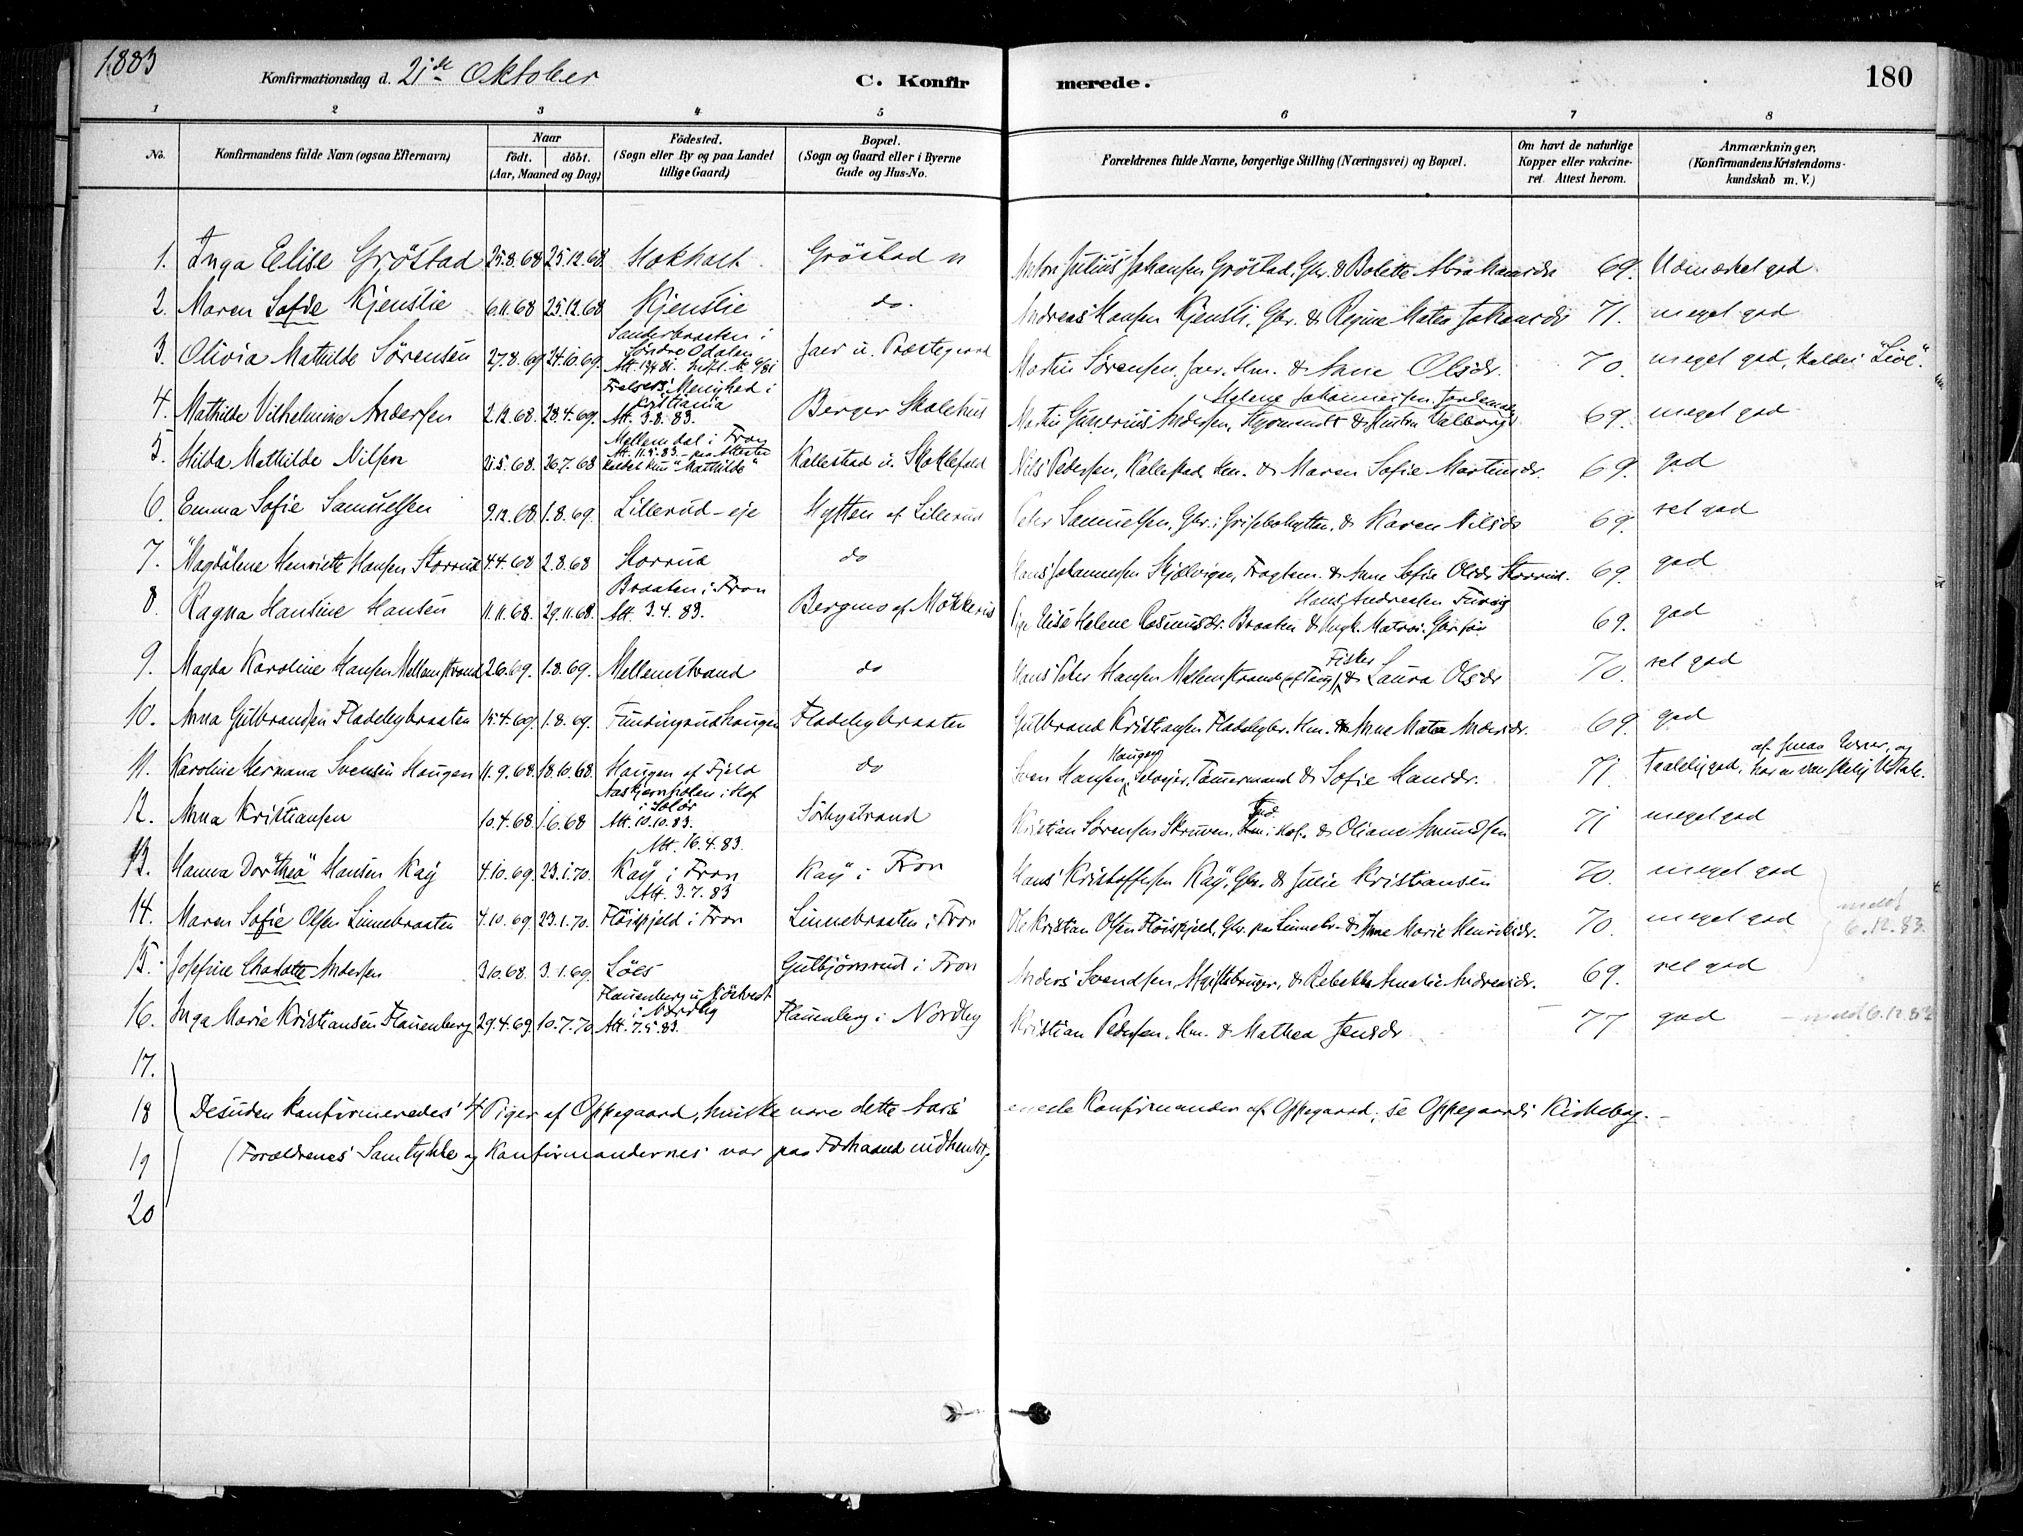 1883
Konfirmationsdag d. 21de Oktober
C. Konfir merede.
180
1 2 3 4 5 6 7 8
No.
Konfirmandens fulde Navn (ogsaa Efternavn)
Naar
födt. döbt.
(Aar, Maaned og Dag)
Födested.
(Sogn eller By og paa Landet
tillige Gaard)
Bopæl.
(Sogn og Gaard eller i Byerne
Gade og Hus-No.
Forældrenes fulde Navne, borgerlige Stilling (Næringsvei) og Bopæl.
Om havt de naturlige
Kopper eller vakcine-
ret. Attest herom.
Anmærkninger.
(Konfirmandens Kristendoms-
kundskab m. V.)
1. Inga Elise Gröstad 25.8.68 25.12.68 Gröstad Anton Julius Johansen Gröstad, Gbr. & Bolette Abrahamsdr 69. Udmærket god
2. Maren Sofie Kjenslie 6.11.68 25.12.68 Kjenslie do. Andreas Hansen Kjensli, Gbr. & Regine Mathea Johansdr 71. meget god
Sanderbraaten i
3. Olivia Mathilde Sörensen 27.8.69 24.10.69 Söndre Odalen Jaer u. Præstegaard Martin Sörensen, Jaer, Hm. & Anne Olsdr. 70. meget god, kaldes "Live".
Frelsers Menighed i
Kristiania Helene Johannesen, Jordemoder
4. Mathilde Vilhelmine Andersen 2.12.68. 28.4.69. Att. 3.8.83. Berger Skolehus Martin Gunerius Andersen, Styrmand & Hustru Valborg 69. meget god
Mellemdal i Fron
Att. 11.5.83.
5. Hilda Mathilde Nilsen 21.5.68 26.7.68 "Mathilde" Kallestad u. Skoklefald Nils Pedersen, Kallestad, Hm. & Maren Sofie Martinsdr. 69. god
6. Emma Sofie Samuelsen 9.12.68 1.8.69. Lillerud-eje Hytten af Lillerud Peter Samuelsen, Gbr. i Grisebohytten, & Karen Nilsdr 69. vel god
7. Magdalene Henriette Hansen Storrud 4.4.68 2.8.68 Storrud do Hans Johannesen Skjælvigen, Fragtem. & Anne Sofie Olsdr Storrud. 69. god
Braaten i Fron Hans Andreasen
8. Ragna Hansine Hansen 11.11.68. 29.11.68. Att. 3.4.83. Bergmo af Mokkerus Pige Elise Helene Rasmusdr. Braaten & Ungk. Matros 69. god
Fisker
9. Magda Karoline Hansen Mellemstrand 2.6.69. 1.8.69. Mellemstrand do Hans Peter Hansen Mellemstrand & Laura Olsdr 70. vel god
10. Anna Gulbrandsen Fladebybraaten 15.4.69. 1.8.69. Fundingsrudhaugen Fladebybraaten Gulbrand Kristiansen Fladebybr. Hm. & Anne Mathea Andersdr. 69. god
Haugen af smaa Evner, og
11. Karoline Hermana Svensen Haugen 11.9.68 18.10.68. Haugen af Fjeld do Sven Hansen, Selvejer, Tömmermand & Sofie Hansdr. 71. Taalelig god, har en vanskelig Udtale.
i Hof
i Solör
12. Anna Kristiansen 10.4.68 1.6.68 Att. 10.10.83. Sörbystrand Kristian Sörensen Skruven, Hm. i Hof. & Oliane Amundsen 71 meget god
Att. 16.4.83.
13. Hanna Dorthea Hansen Kaÿ 4.10.69. 23.1.70. Kaÿ i Fron Kaÿ i Fron Hans Kristoffersen Kaÿ, Gbr. & Julie Kristiansen 70. meget god
Att. 3.7.83
14. Maren Sofie Olsen Linnebraaten 4.10.69 23.1.70. Flöispjeld i Fron Linnebraaten i Fron Ole Kristian Olsen Flöispjeld, Gbr. paa Linnebr. & Anne Marie Henriksdr. 70. meget god meldt
6.12.83.
15. Josefine Charlotte Andersen 3.10.68. 3.1.69. Löes Gulbjörnrud i Fron Anders Svendsen, & Rebekka Amalie Andreasdr. 69. vel god
Flauenberg u. Nökvest
i Nordby
16. Inga Marie Kristiansen Flauenberg 29.4.69. 10.7.70. Att. 7.5.83. Flauenberg i Nordby Kristian Pedersen, Hm. & Mathea Jensdr. 77 god - meldt 6.12.83
17.
18 Desuden konfirmeredes 4 Piger af Oppegaard, hvilke vare dette Aars eneste Konfirmander af Oppegaard; se Oppegaards Kirkebog.
19 (Forældrenes Samtykke og Konfirmandernes var paa Forhaand indhentet.)
20